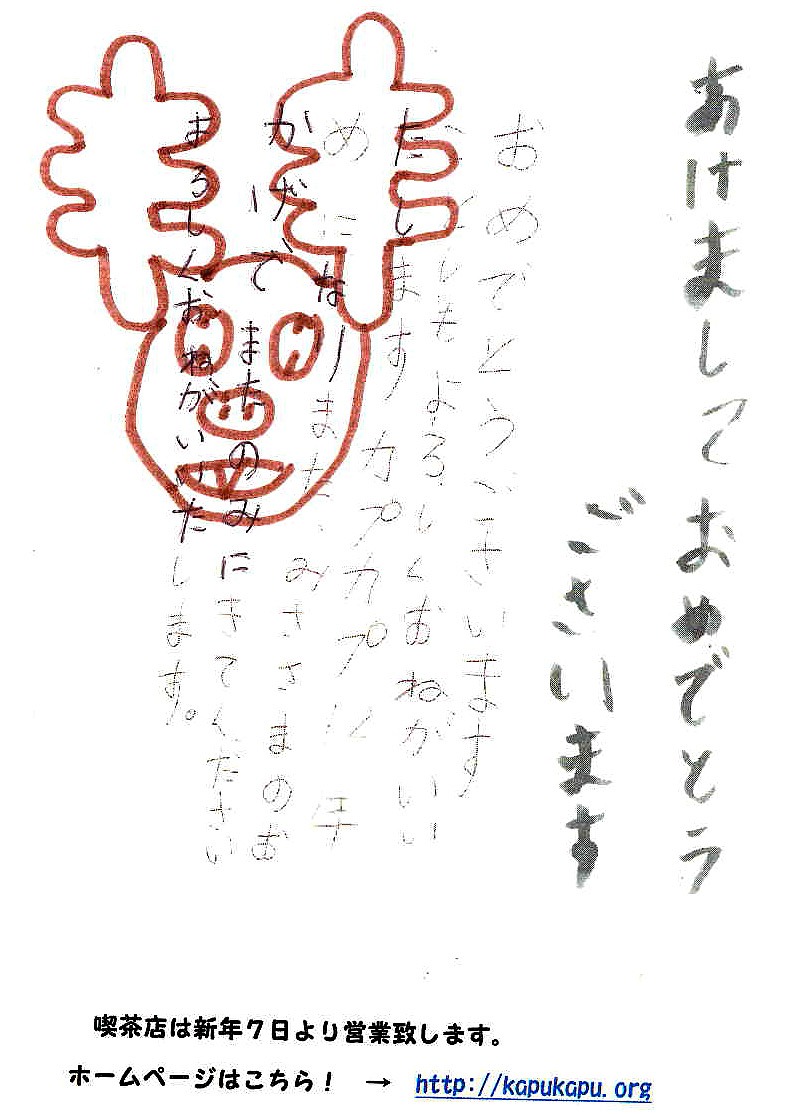 あけましておめでとう
ございます
おめでとうございます
ことしもよろしくおねがいい
たします カプカプ11年
めになりました、みささまのお
かげで またのみにきてください
よろしくおねがいいたします。
喫茶店は新年７日より営業致します。
ホームページはこちら！ → http://kapukapu.org